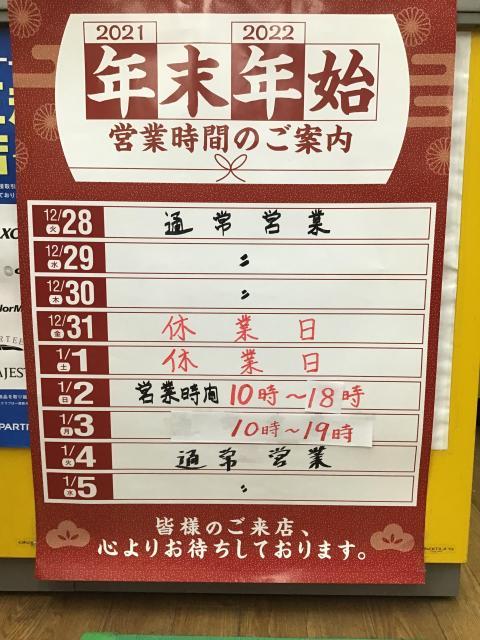 2021 2022
年末年始
営業時間のご案内
12/28 火 通常営業
12/29 水 〃
12/30 木 〃
12/31 金 休業日
1/1 土 休業日
1/2 日 営業時間 10時～18時
1/3 月 10時～19時
1/4 火 通常営業
1/5 水 〃
皆様のご来店、
心よりお待ちしております。